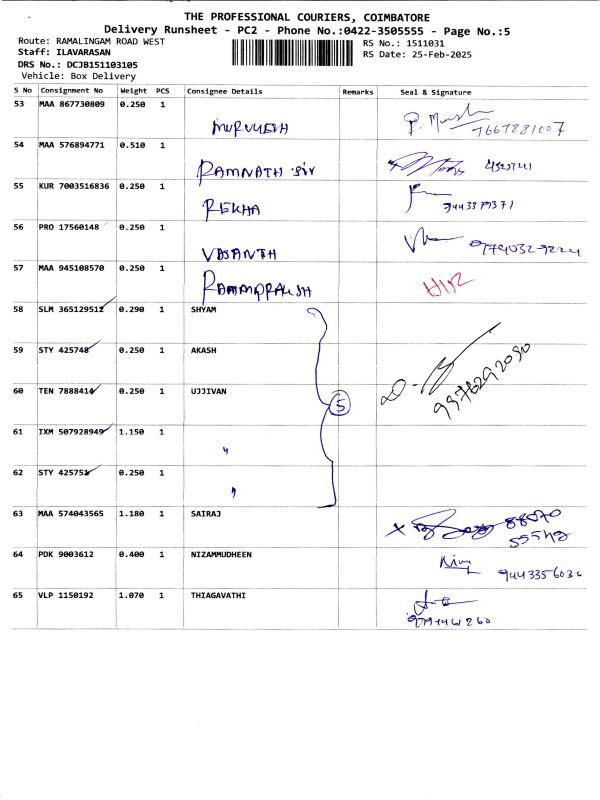 THE PROFESSIONAL COURIERS, COIMBATORE
Delivery Runsheet - PC2 - Phone No.:0422-3505555 - Page No.:5
Route: RAMALINGAM ROAD WEST RS No.: 1511031
Staff: ILAVARASAN RS Date: 25-Feb-2025
DRS No.: DCJB151103105
Vehicle: Box Delivery
S No Consignment No Weight PCS Consignee Details Remarks Seal & Signature
53 MAA 867730809 0.250 1
MURUGESH 7667881007
54 MAA 576894771 0.510 1
RAMNATH SIR
55 KUR 7003516836 0.250 1
REKHA
56 PRO 17560148 0.250 1
VASANTH
57 MAA 945108570 0.250 1
RAMAPRAKASH
58 SLM 365129512 0.290 1 SHYAM
59 STY 425748 0.250 1 AKASH
60 TEN 7888414 0.250 1 UJJIVAN
5
61 IXM 507928949 1.150 1
"
62 STY 425752 0.250 1
"
63 MAA 574043565 1.180 1 SAIRAJ
64 PDK 9003612 0.400 1 NIZAMMUDHEEN
65 VLP 1150192 1.070 1 THIAGAVATHI